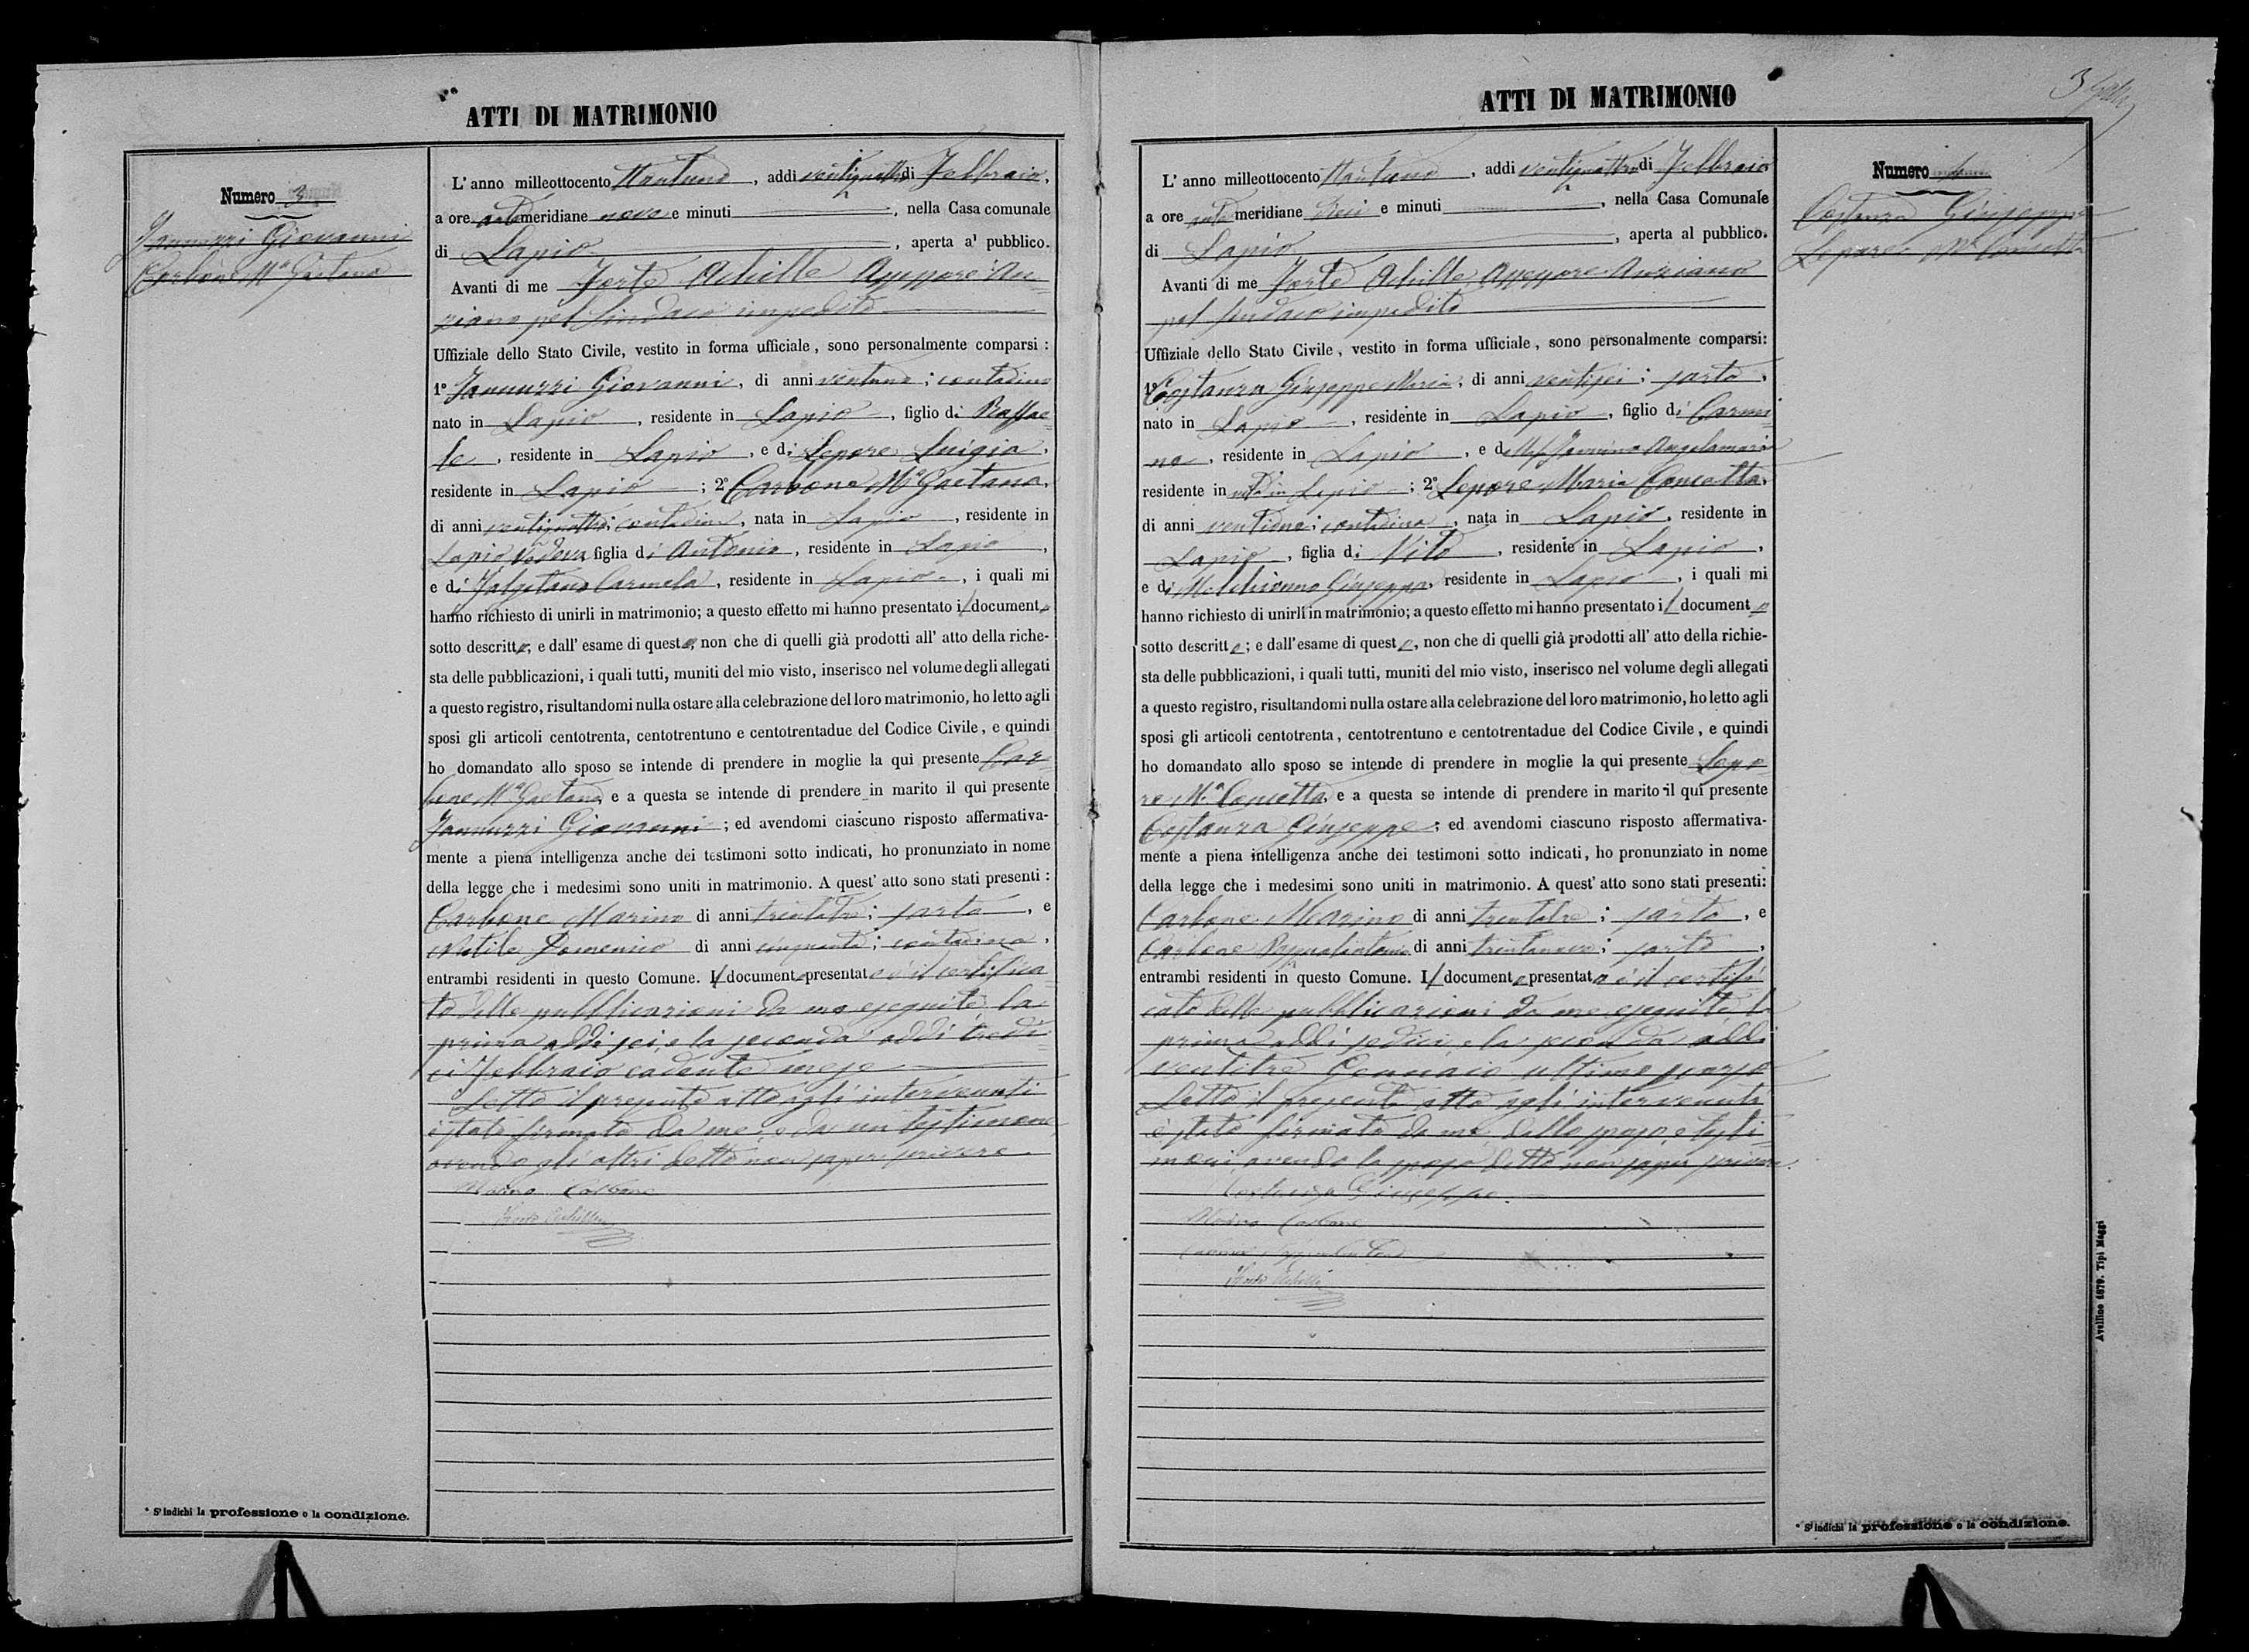 ATTI DI MATRIMONIO
Numero 3
Jannuzzi Giovanni
Carbone Mª Gaetana
L' anno milleottocento ttantuno, addì ventiquattro di Febbraio,
a ore antimeridiane nove e minuti , nella Casa comunale
di Lapio , aperta al pubblico.
Avanti di me Forte Achille Assessore An=
ziano pel Sindaco impedito
Uffiziale dello Stato Civile, vestito in forma ufficiale, sono personalmente comparsi:
1º Jannuzzi Giovanni, di anni ventuno; contadino
nato in Lapio, residente in Lapio, figlio di Raffae=
le, residente in Lapio, e di Lepore Luigia,
residente in Lapio; 2º Carbone Mª Gaetana,
di anni ventiquattro; contadina, nata in Lapio, residente in
Lapio vedova figlia di Antonio, residente in Lapio,
e di Carmela, residente in Lapio, i quali mi
hanno richiesto di unirli in matrimonio; a questo effetto mi hanno presentato il documento
sotto descritto; e dall' esame di questo, non che di quelli già prodotti all' atto della riche-
sta delle pubblicazioni, i quali tutti, muniti del mio visto, inserisco nel volume degli allegati
a questo registro, risultandomi nulla ostare alla celebrazione del loro matrimonio, ho letto agli
sposi gli articoli centotrenta, centotrentuno e centotrentadue del Codice Civile, e quindi
ho domandato allo sposo se intende di prendere in moglie la qui presente Car=
bone Mª Gaetana, e a questa se intende di prendere in marito il qui presente
Jannuzzi Giovanni; ed avendomi ciascuno risposto affermativa-
mente a piena intelligenza anche dei testimoni sotto indicati, ho pronunziato in nome
della legge che i medesimi sono uniti in matrimonio. A quest' atto sono stati presenti:
Carbone Marino di anni trentatre; sarto, e
Domenico di anni cinquanta; contadino,
entrambi residenti in questo Comune. Il documento presentato è il certifica=
to delle pubblicazioni da me eseguite, la
prima addì sei, e la seconda addì tredi=
ci Febbraio cadente mese
Letto il presente atto agli intervenuti
è stato firmato da me, e da un testimone
avendo gli altri detto non saper scrivere.
Marino Carbone
Forte Achille
* S' indichi la professione o la condizione.
ATTI DI MATRIMONIO
3
Numero 4
Costanza Giuseppe
Lepore Mª Concetta
L' anno milleottocento ttantuno, addì ventiquattro di Febbraio
a ore antimeridiane dieci e minuti , nella Casa Comunale
di Lapio , aperta al pubblico.
Avanti di me Forte Achille Assessore Anziano
pel Sindaco impedito
Uffiziale dello Stato Civile, vestito in forma ufficiale, sono personalmente comparsi:
1º Costanza Giuseppe Maria, di anni ventisei; sarto,
nato in Lapio, residente in Lapio, figlio di Carmi=
ne, residente in Lapio, e di Angelamaria
residente in vita in Lapio; 2º Lepore Maria Concetta,
di anni ventuno; contadina, nata in Lapio, residente in
Lapio, figlia di Vito, residente in Lapio,
e di Melchionno Giuseppa, residente in Lapio, i quali mi
hanno richiesto di unirli in matrimonio; a questo effetto mi hanno presentato il documento
sotto descritto; e dall' esame di questo, non che di quelli già prodotti all' atto della richie-
sta delle pubblicazioni, i quali tutti, muniti del mio visto, inserisco nel volume degli allegati
a questo registro, risultandomi nulla ostare alla celebrazione del loro matrimonio, ho letto agli
sposi gli articoli centotrenta, centotrentuno e centotrentadue del Codice Civile, e quindi
ho domandato allo sposo se intende di prendere in moglie la qui presente Lepo=
re Mª Concetta, e a questa se intende di prendere in marito il qui presente
Costanza Giuseppe; ed avendomi ciascuno risposto affermativa-
mente a piena intelligenza anche dei testimoni sotto indicati, ho pronunziato in nome
della legge che i medesimi sono uniti in matrimonio. A quest' atto sono stati presenti:
Carbone Marino di anni trentatre; sarto, e
Carbone di anni trentanove; sarto,
entrambi residenti in questo Comune. Il documento presentato è il certifi=
cato delle pubblicazioni da me eseguite, la
prima addì sedici, e la seconda addì
ventitre Gennaio ultimo scorso
Letto il presente atto agli intervenuti
è stato firmato da me, dallo sposo, e testi=
moni avendo la sposa detto non saper scrivere.
Costanza Giuseppe
Marino Carbone
Forte Achille
* S' indichi la professione o la condizione.
Avellino 1879. Tipi Maggi